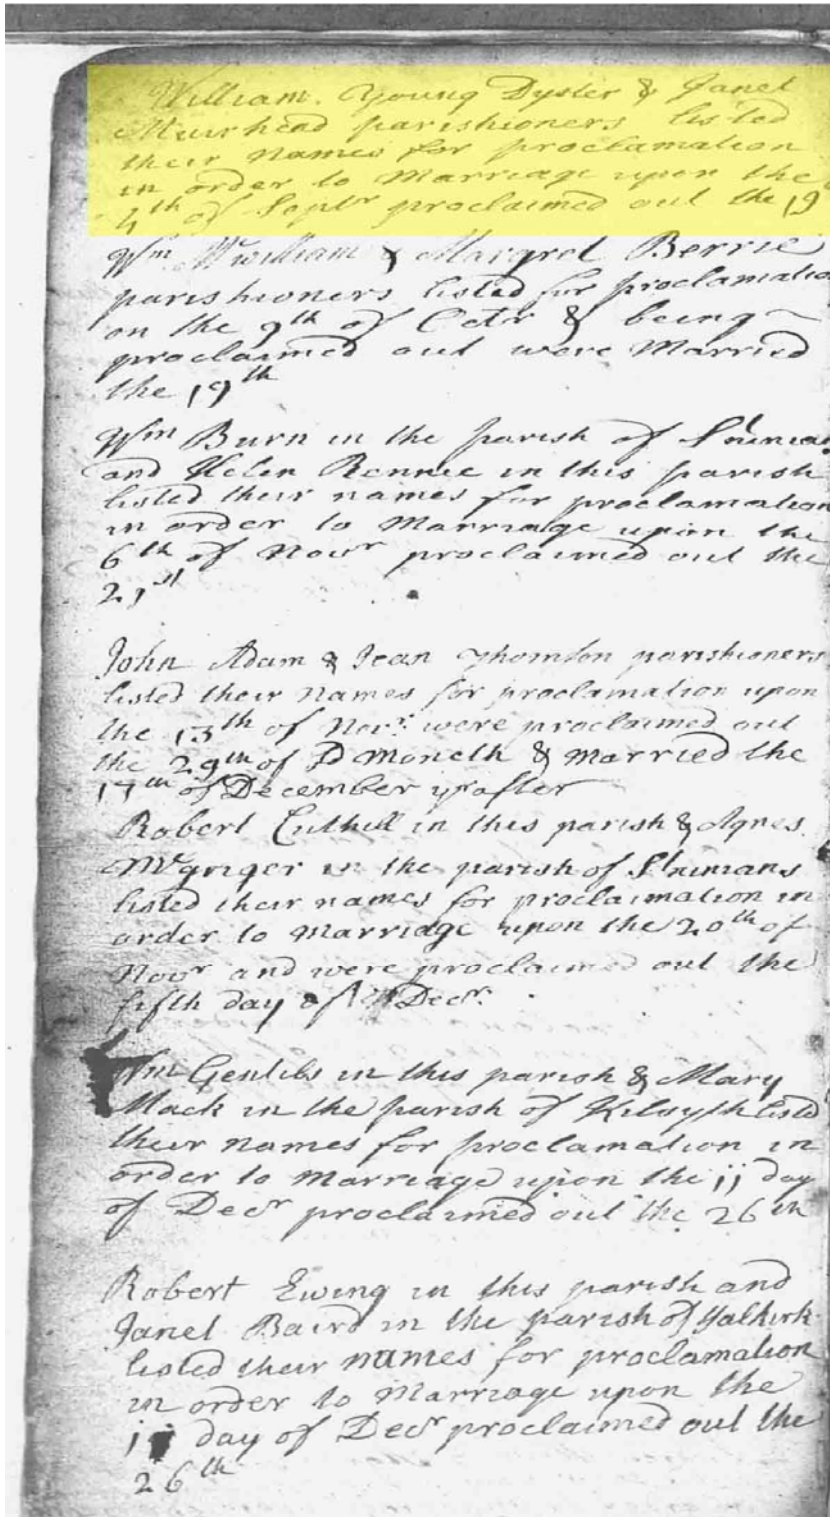 William Young Dyster & Janet
Muirhead parishioners listed
their names for proclamation
in order to Marriage upon the
4th of Septr proclaimed out the 19
Wm McWilliam & Margret Berrie
parishioners listed for proclamatio
on the 9th of Octr & being
proclaimed out were Married
the 19th
Wm Burn in the parish of
and Helen Rennie in this parish
listed their names for proclamation
in order to Marriage upon the
6th of Novr proclaimed out the
21st
John Adam & Jean Thomson parishioners
listed their names for proclamation upon
the 13th of Novr. were proclaimed out
the 29th of Moneth & Married the
17th of December yrafter
Robert Cuthill in this parish & Agnes
McGriger in the parish of St ninians
listed their names for proclaimation in
order to Marriage upon the 20th of
Novr and were proclaimed out the
fifth day of Decr.
Wm Gentles in this parish & Mary
Mack in the parish of Kilsyth listd
their names for proclamation in
order to Marriage upon the 11 day
of Decr proclaimed out the 26th
Robert Ewing in this parish and
Janet Baird in the parish of falkirk
listed their names for proclamation
in order to Marriage upon the
day of Decr proclaimed out the
26th